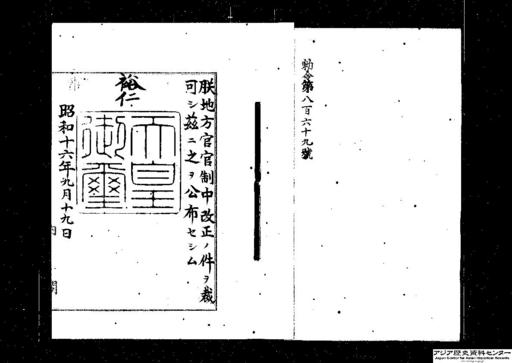 勅令第八百六十九號
朕地方官官制中改正ノ件ヲ裁
可シ茲ニ之ヲ公布セシム
裕仁
天皇
御璽
昭和十六年九月十九日
アジア歴史資料センター
Japan Center for Asian Historical Records